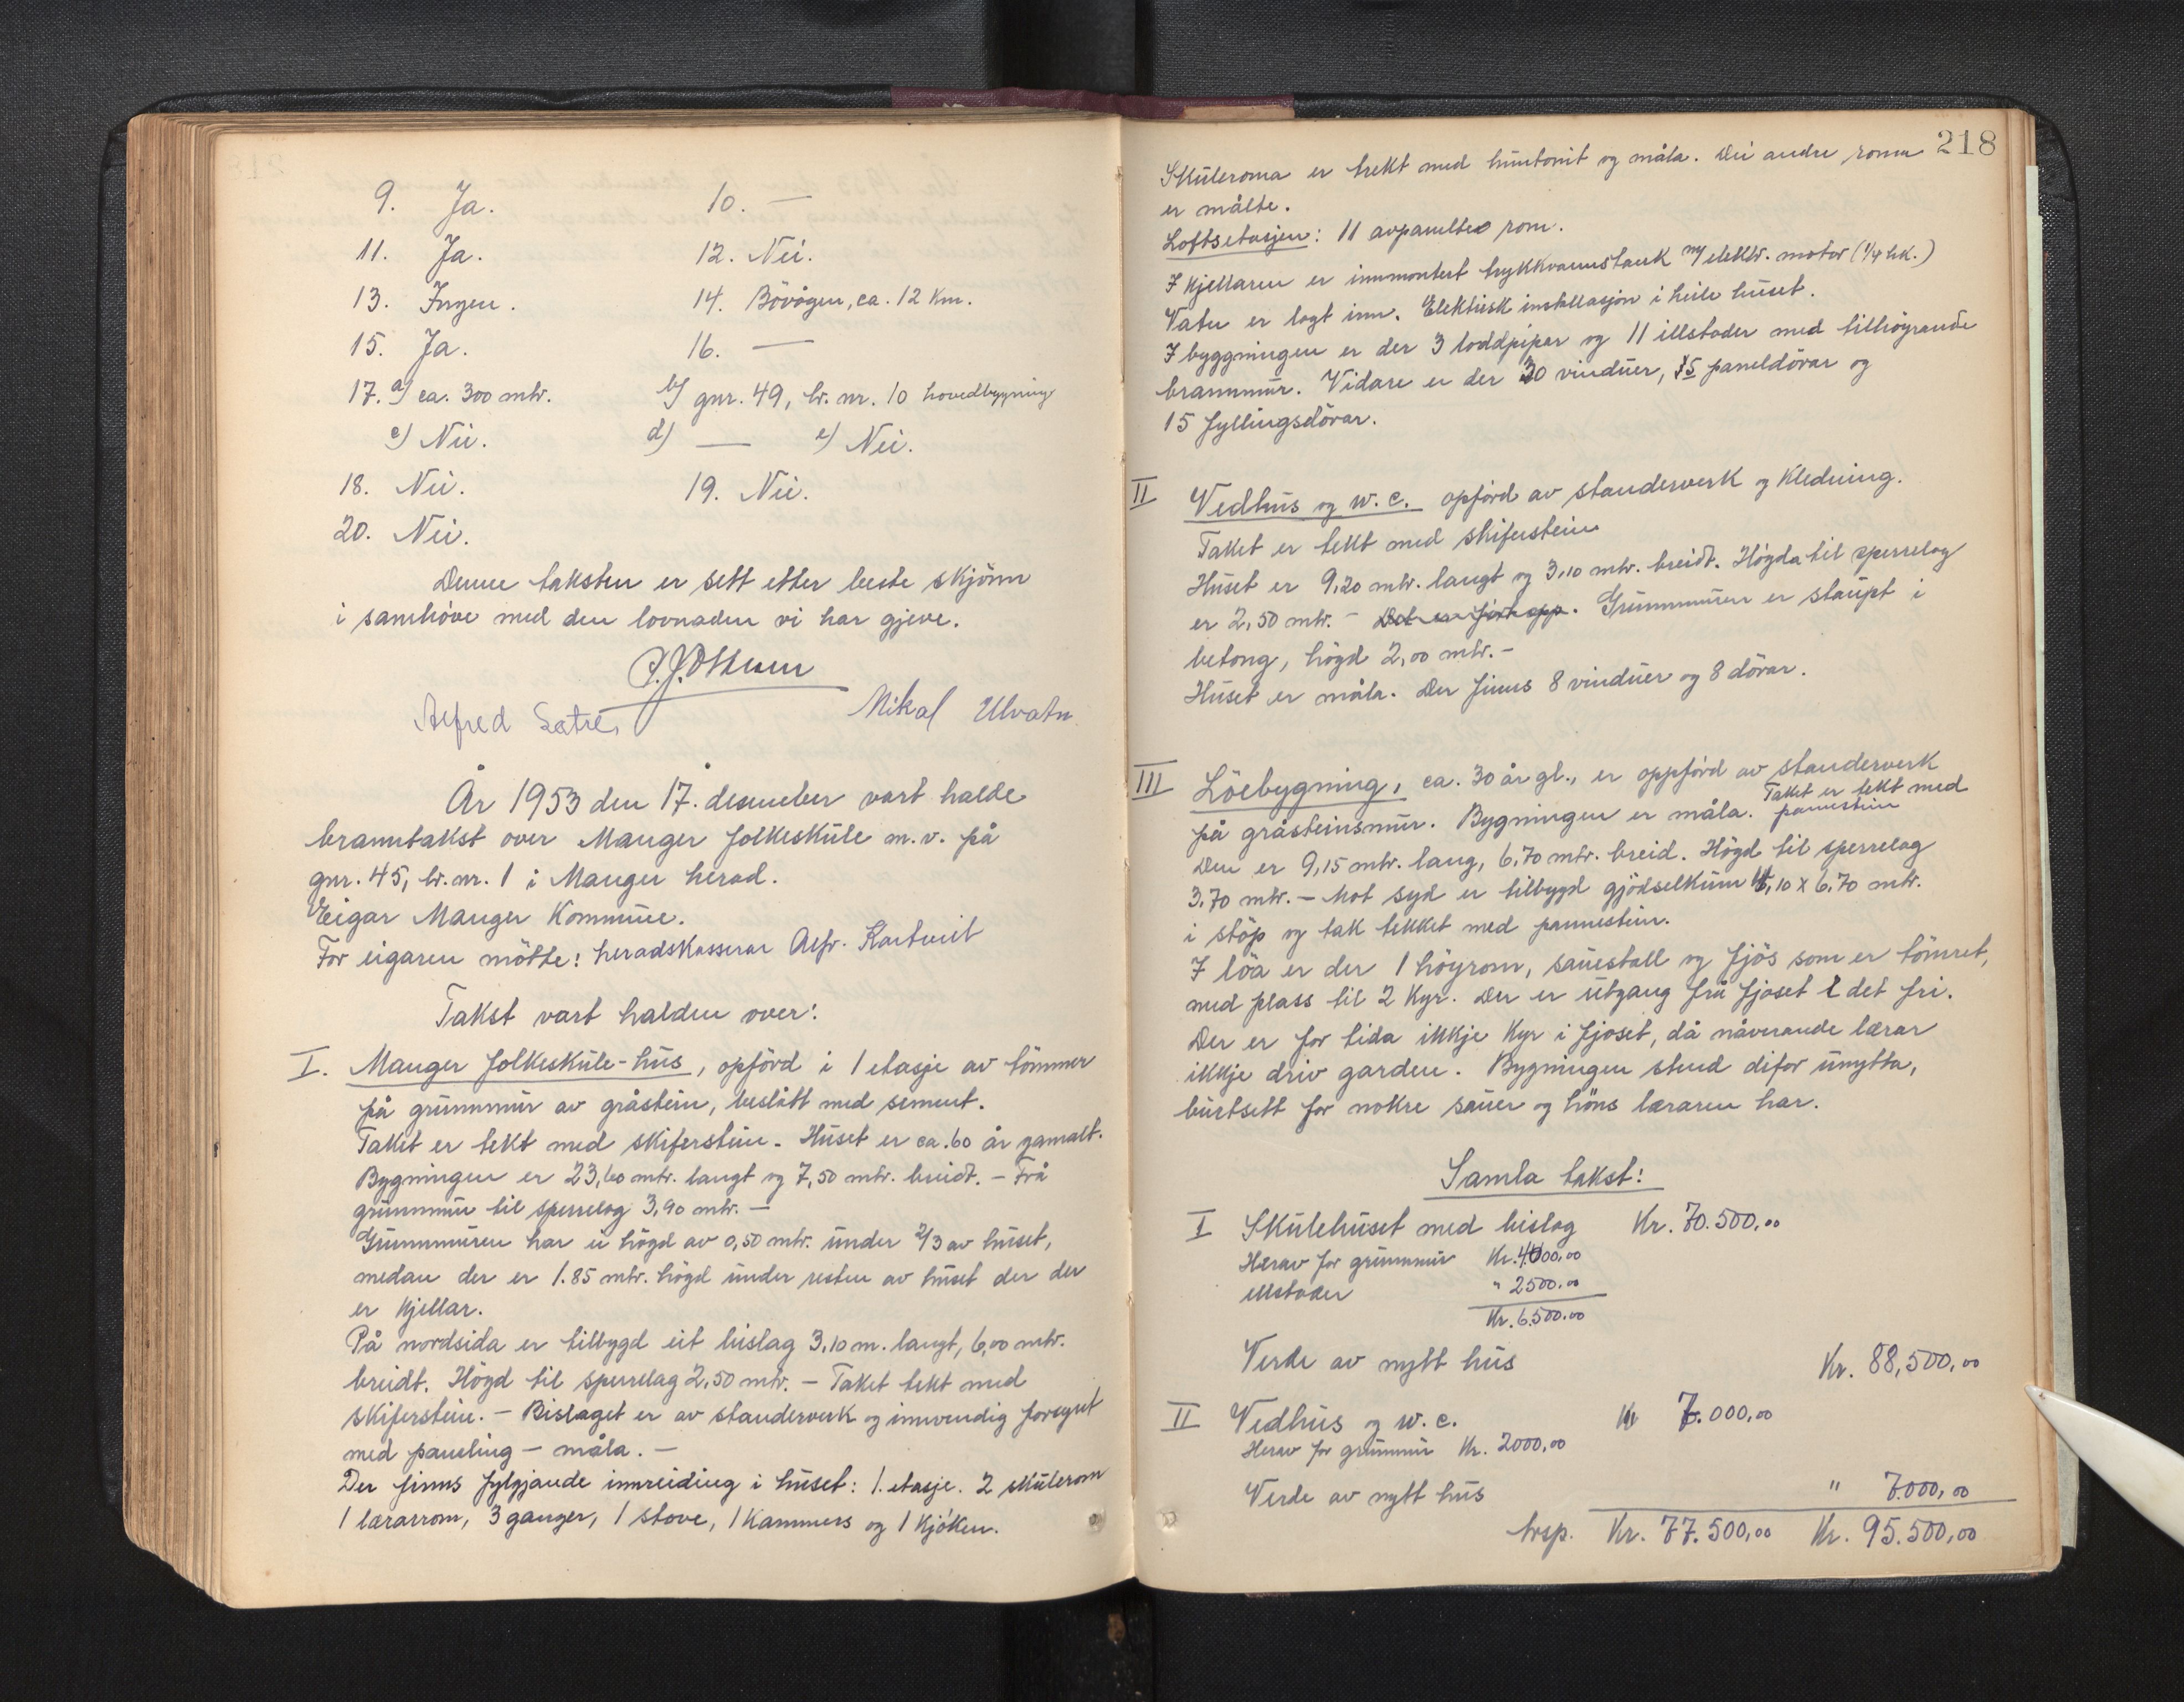 9. Ja. 10. —
11. Ja. 12. Nei.
13. Ingen. 14. Bövågen, ca. 12 km.
15. Ja. 16. —
17. a) ca. 300 mtr. b) gnr. 49, br. nr. 10 hovedbygning
c) Nei. d) — e) Nei.
18. Nei. 19. Nei.
20. Nei.
Denne taksten er sett etter beste skjönn
i samhöve med den lovnaden vi har gjeve.
Alfred Sætre, Mikal Ulvatn
År 1953 den 17. desember vart halde
branntakst over Manger folkeskule m.v. på
gnr. 45, br. nr. 1 i Manger herad.
Eigar Manger Kommune.
For eigaren mötte: heradskasserar Alfr. Kartveit
Takst vart halden over:
I. Manger folkeskule-hus, opförd i 1 etasje av tömmer
på grunnmur av gråstein, beslått med sement.
Taket er tekt med skiferstein. Huset er ca. 60 år gamalt.
Bygningen er 23,60 mtr. langt og 7,50 mtr. breidt. — Frå
grunnmur til sperrelag 3,90 mtr. —
Grunnmuren har ei högd av 0,50 mtr. under 2/3 av huset,
medan der er 1.85 mtr. högd under resten av huset der der
er kjellar.
På nordsida er tilbygd eit bislag 3,10 m. langt, 6,00 mtr.
breidt. Högd til sperrelag 2,50 mtr. — Taket tekt med
skiferstein. — Bislaget er av standerverk og innvendig forsynt
med paneling — måla. —
Der finns fylgjande innreiding i huset: 1. etasje. 2 skulerom
1 lærarrom, 3 ganger, 1 stove, 1 kammers og 1 kjöken.
218
Skuleroma er trekt med huntonit og måla. Dei andre roma
er målte.
Loftsetasjen: 11 avpanelte rom.
I kjellaren er innmontert trykkvannstank m/ elektr. motor (1/4 hk.)
Vatn er lagt inn. Elektrisk installasjon i heile huset.
I byggningen er der 3 loddpipar og 11 illstader med tilhöyrande
brannmur. Vidare er der 30 vinduer, 15 paneldörar og
15 fyllingsdörar.
II Vedhus og w.c. opförd av standerverk og kledning.
Taket er tekt med skiferstein
Huset er 9,20 mtr. langt og 3,10 mtr. breidt. Högda til sperrelag
er 2,50 mtr. — Det er fört opp. Grunnmuren er staupt i
betong, högd 2,00 mtr. —
Huset er måla. Der finns 8 vinduer og 8 dörar.
III Löebygning, ca. 30 år gl., er oppförd av standerverk
på gråsteinsmur. Bygningen er måla. Taket er tekt med
pannestein
Den er 9,15 mtr. lang, 6,70 mtr. breid. Högd til sperrelag
3,70 mtr. — Mot syd er tilbygd gjödselkum 4,10 x 6,70 mtr.
i stöp og tak tekket med pannestein.
I löa er der 1 höyrom, sauestall og fjös som er tömret,
med plass til 2 kyr. Der er utgang frå fjoset t det fri.
Der er for tida ikkje kyr i fjoset, då nåverande lærar
ikkje driv garden. Bygningen stend difor unytta,
burtsett for nokre sauer og höns læraren har.
Samla takst:
I Skulehuset med bislag Kr. 70.500,00
Herav for grunnmur Kr. 4000,00
illstader " 2500,00
Kr. 6.500,00
Verde av nytt hus Kr. 88,500,00
II Vedhus og w.c. Kr 7.000,00
Herav for grunnmur Kr. 2000,00
Verde av nytt hus " 7.000,00
trsp. Kr. 77.500,00 Kr. 95.500,00